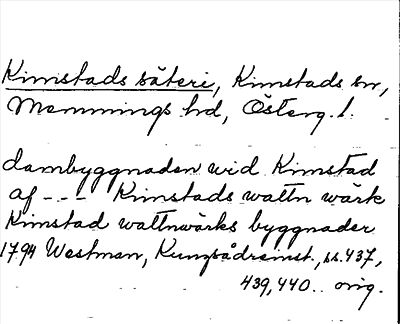 Kimstads säteri, Kimstads sn,
Memmings hd, Österg. l.
dambyggnaden wid Kimstad
af --- Kimstads wattn wärk
Kimstad wattnwärks byggnader
1794 Westman, Kungsådremst., ss. 437,
439, 440. orig.